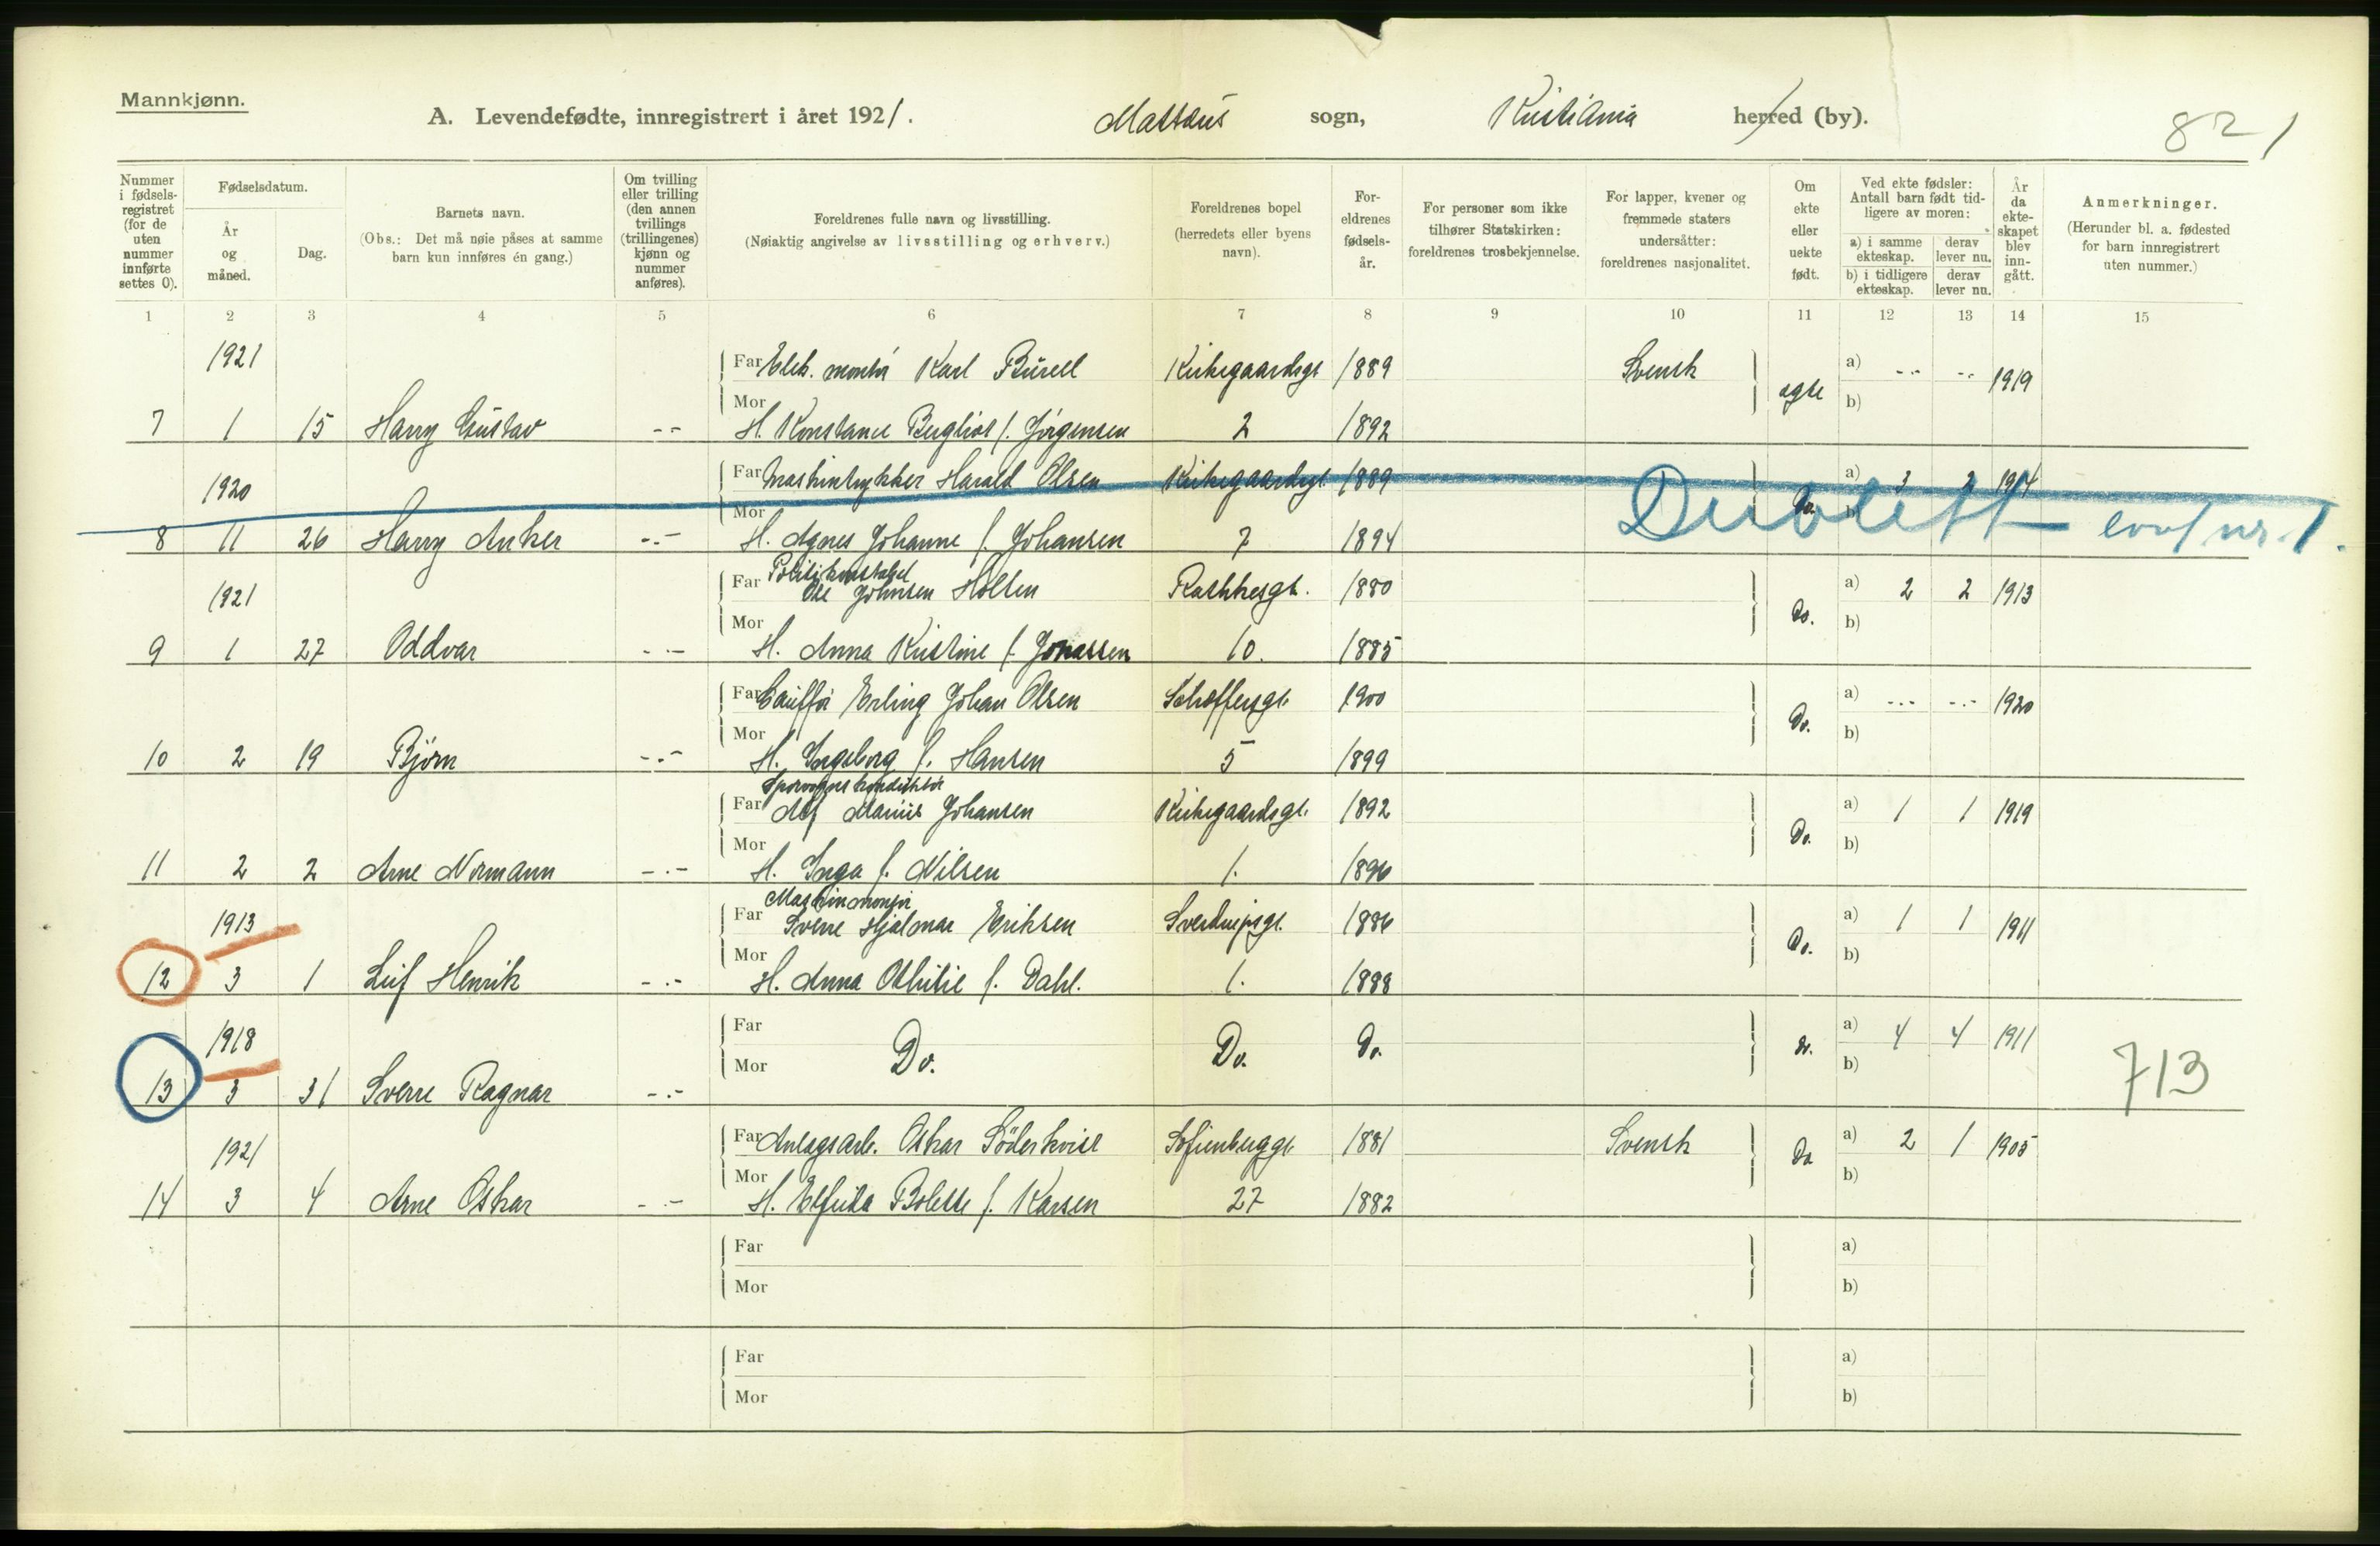 Mannkjønn.
A. Levendefødte, innregistrert i året 1921. Mattæus sogn, Kristiania herred (by).
82 1
Nummer i fødsels-registret (for de uten nummer innførte settes 0).
Fødselsdatum.
År og måned.
Dag.
Barnets navn.
(Obs.: Det må nøie påses at samme barn kun innføres én gang.)
Om tvilling eller trilling (den annen tvillings (trillingenes) kjønn og nummer anføres).
Foreldrenes fulle navn og livsstilling.
(Nøiaktig angivelse av livsstilling og erhverv.)
Foreldrenes bopel (herredets eller byens navn).
For-eldrenes fødsels-år.
For personer som ikke tilhører Statskirken: foreldrenes trosbekjennelse.
For lapper, kvener og fremmede staters undersåtter: foreldrenes nasjonalitet.
Om ekte eller uekte født.
Ved ekte fødsler: Antall barn født tid-ligere av moren:
a) i samme ekteskap. derav lever nu.
b) i tidligere ekteskap. derav lever nu.
År da ekte-skapet blev inn-gått.
Anmerkninger.
(Herunder bl. a. fødested for barn innregistrert uten nummer.)
1 2 3 4 5 6 7 8 9 10 11 12 13 14 15
1921 Far Elek. montør Karl Burell Kirkegaardsgt 1889 Svensk ægte a) -.- -.- 1919
7 1 15 Harry Gustav -- Mor H. Konstance Bergliot f. Jörgensen 2 1892 b)
1920 Far Maskintrykker Harald Olsen Kirkegaardsgt. 1889 Do. a) 3 2 1914
8 11 26 Harry Anker -.- Mor H. Agnes Johanne f. Johansen 7 1894 b) Dublett nr. 1.
1921 Far Politikonstabel Ole Johnsen Holten Rathkesgt. 1880 Do. a) 2 2 1913
9 1 27 Oddvar -.- Mor H. Anna Kristine f. Jonassen 10. 1885 b)
Far Chauffør Erling Johan Olsen Schoffersgt. 1900 Do. a) -.- -.- 1920
10 2 19 Bjørn -.- Mor H. Ingeborg f. Hansen 5 1899 b)
Far Sporvognskonduktør Alf Marius Johansen Kirkegaardsgt. 1892 Do. a) 1 1 1919
11 2 2 Arne Normann -.- Mor H. Inga f. Nilsen 1. 1896 b)
1913 Far Sverre Hjalmar Eriksen Sverdrupsgt. 1886 Do. a) 1 1 1911
12 3 1 Leif Henrik -.- Mor H. Anna Othilie f. Dahl. 1. 1888 b)
1918 Far Do. Do. Do. Do. a) 4 4 1911
13 3 31 Sverre Ragnar -.- Mor b) 713
1921 Far Anlægsarb. Oskar Söderkvist Sofienberggt. 1881 Svensk Do a) 2 1 1905
14 3 4 Arne Oskar -.- Mor H. Elfrida Bolette f. Karsen 27 1882 b)
Far a)
Mor b)
Far a)
Mor b)